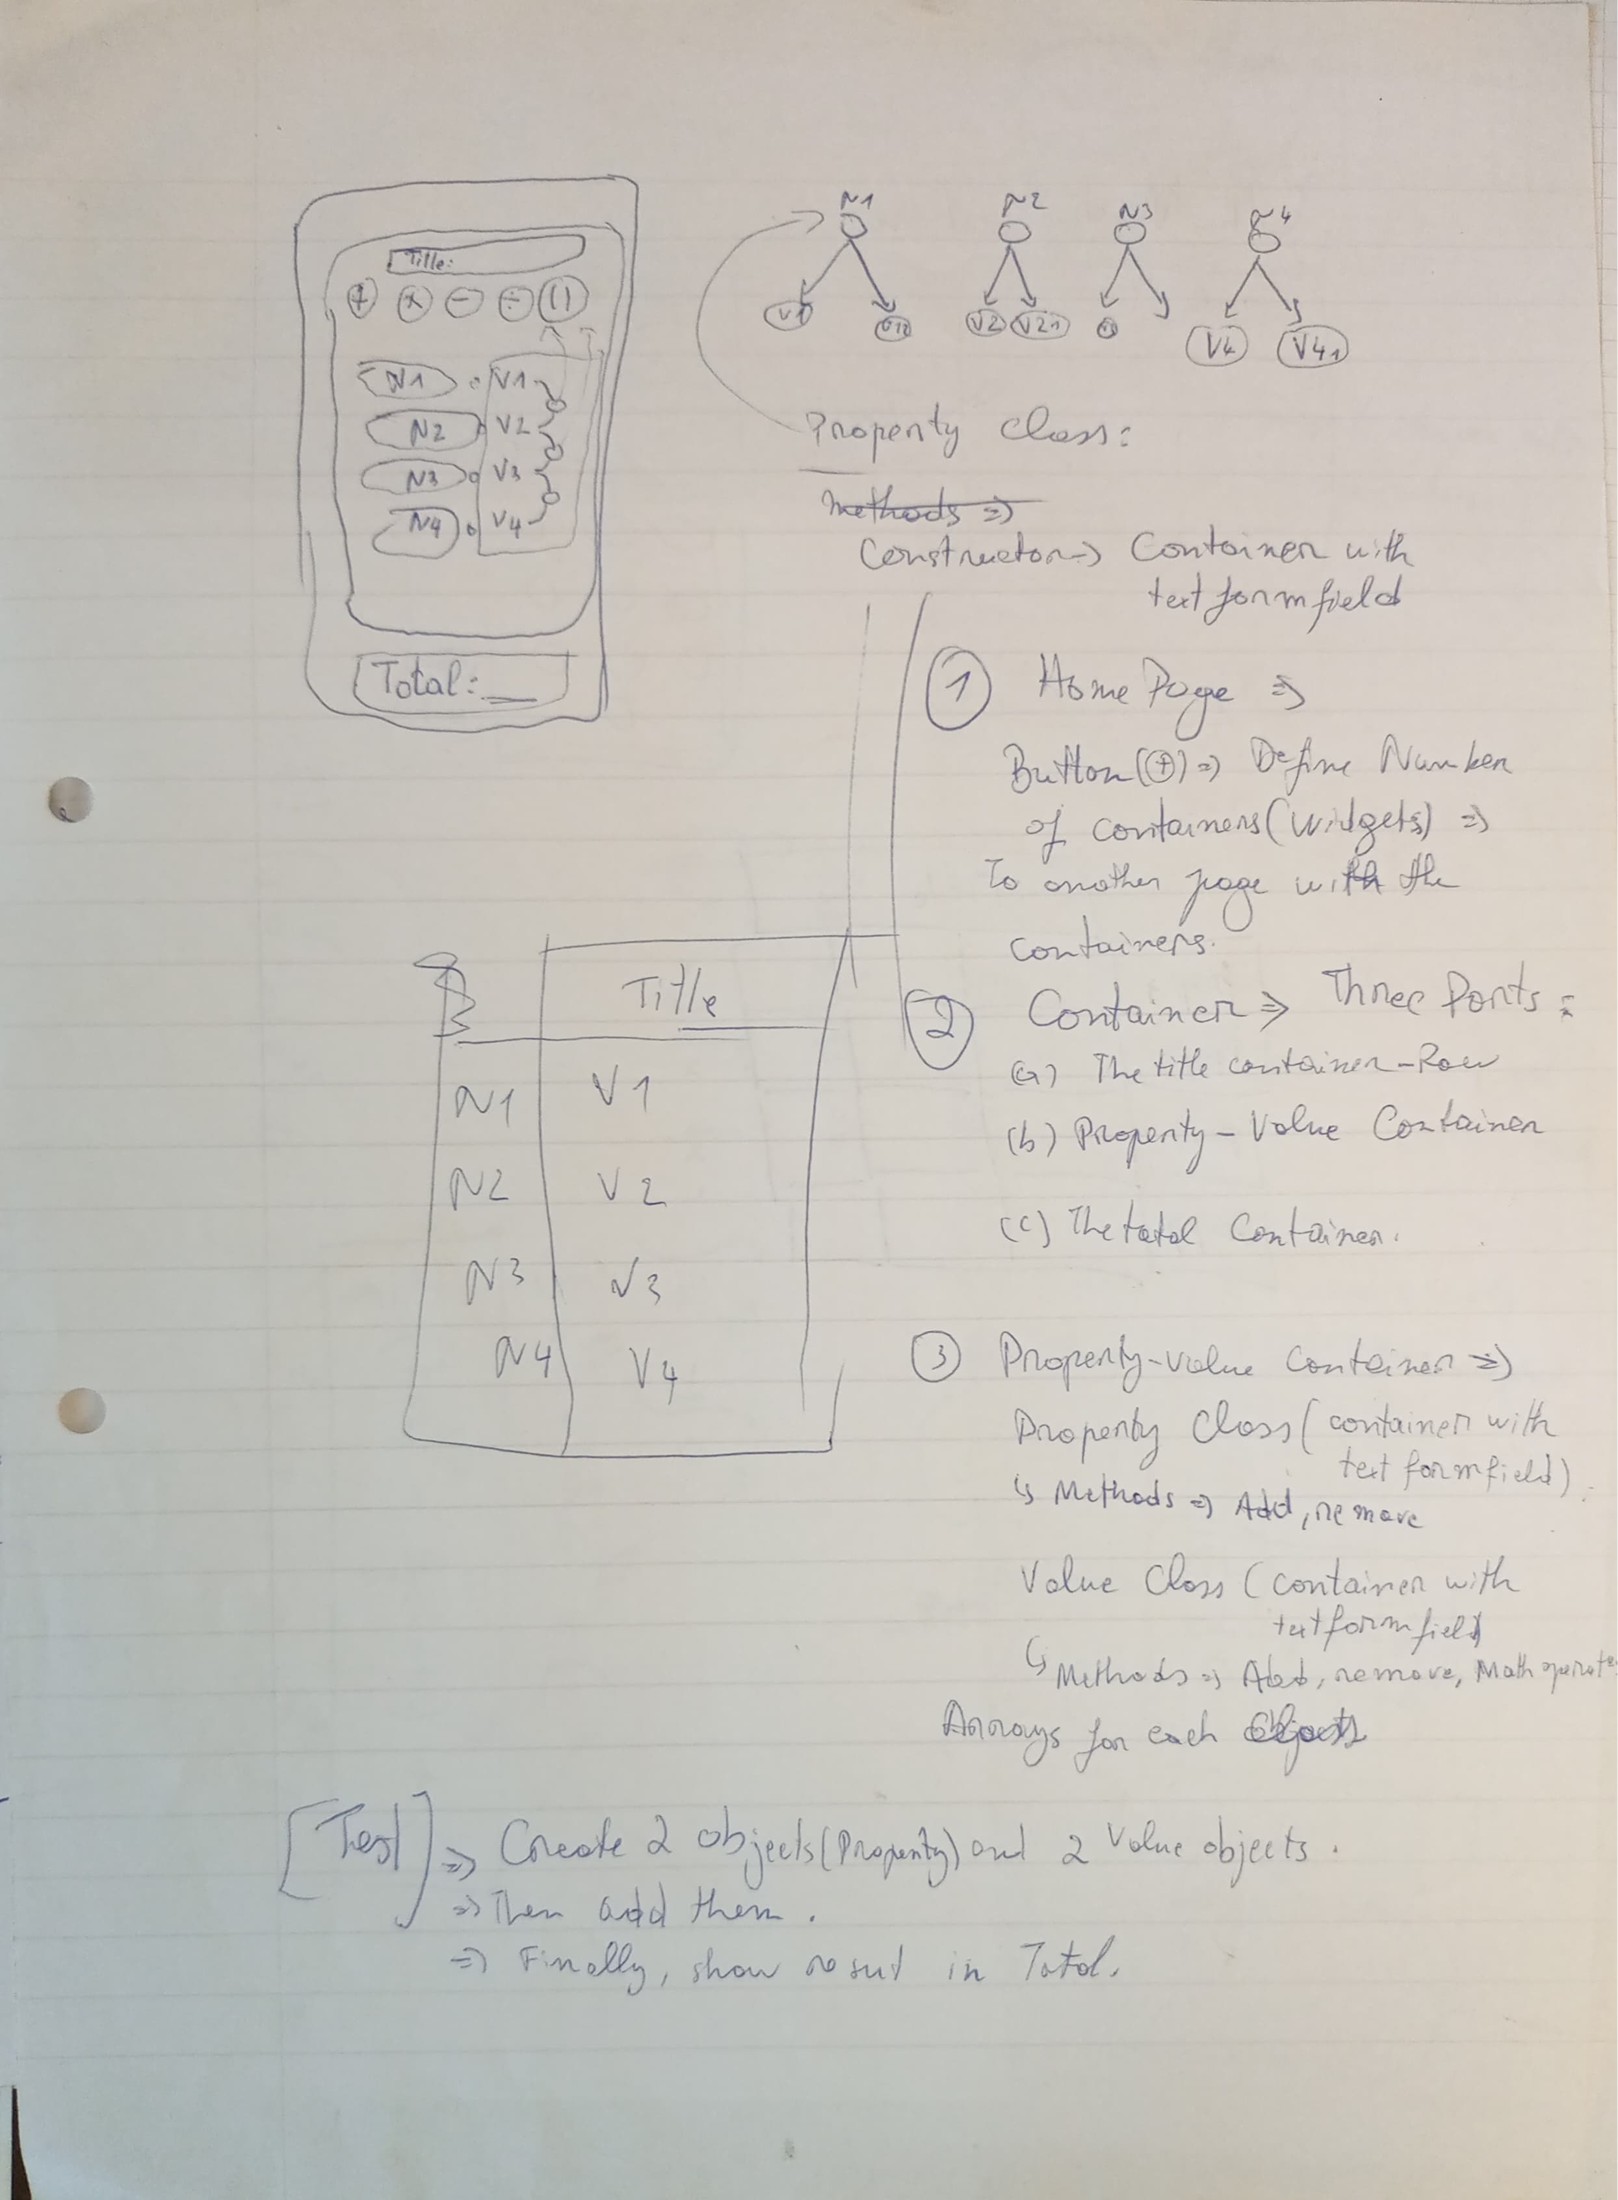 Title:
+ × - ÷ ( )
N1 V1
N2 V2
N3 V3
N4 V4
Total: __
N1 N2 N3 N4
V1 V12 V2 V21 V4 V41
Property class:
methods ⇒
Constructor → Container with
text formfield
1 Home Page ⇒
Button (+) ⇒ Define Number
of containers (widgets) ⇒
To another page with the
containers.
2 Container ⇒ Three Parts:
(a) The title container-Row
(b) Property - Value Container
(c) The total Container.
Title
N1 V1
N2 V2
N3 V3
N4 V4
3 Property-value container ⇒
Property Class (container with
text formfield).
↳ Methods ⇒ Add, remove
Value Class (container with
textformfield
↳ Methods ⇒ Add, remove, Math operate
Arrays for each objects
[Test] ⇒ Create 2 objects (Property) and 2 Value objects.
⇒ Then add them.
⇒ Finally, show result in Total.